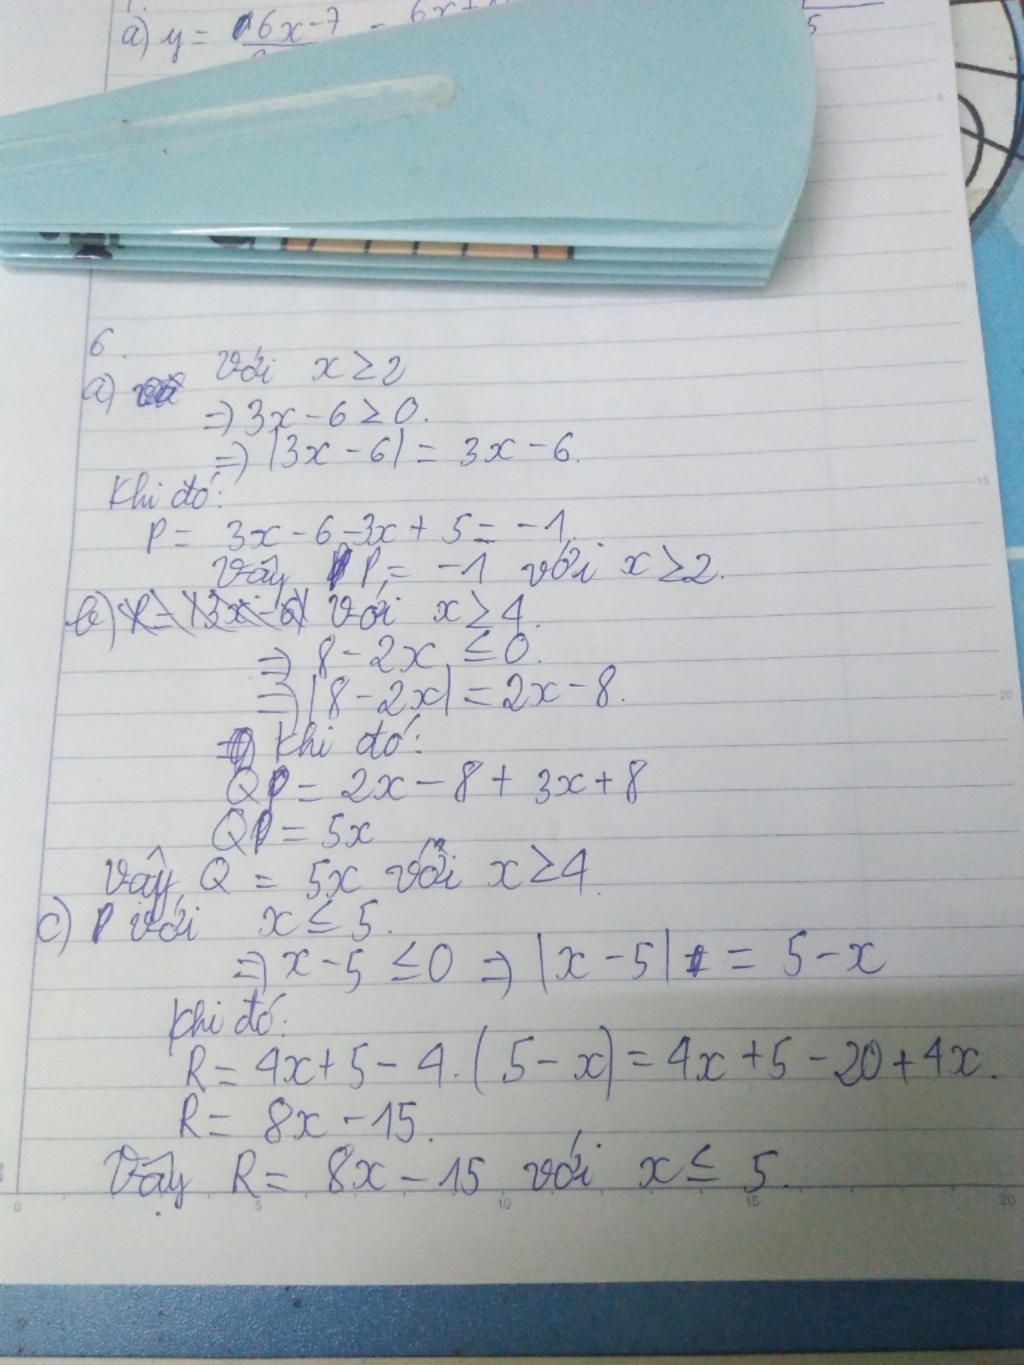 a) y = 6x-7 - 6x+
5
6.
a) với x ≥ 2
⇒ 3x - 6 ≥ 0.
⇒ |3x - 6| = 3x - 6.
Khi đó:
P = 3x - 6 - 3x + 5 = -1.
Vậy P = -1 với x ≥ 2.
b) với x ≥ 4.
⇒ 8 - 2x ≤ 0.
⇒ |8 - 2x| = 2x - 8.
Khi đó:
Q = 2x - 8 + 3x + 8
Q = 5x
Vậy Q = 5x với x ≥ 4.
c) với x ≤ 5.
⇒ x - 5 ≤ 0 ⇒ |x - 5| = 5 - x
Khi đó:
R = 4x + 5 - 4.(5 - x) = 4x + 5 - 20 + 4x.
R = 8x - 15.
Vậy R = 8x - 15 với x ≤ 5.
0 5 10 15 20
5
10
15
20